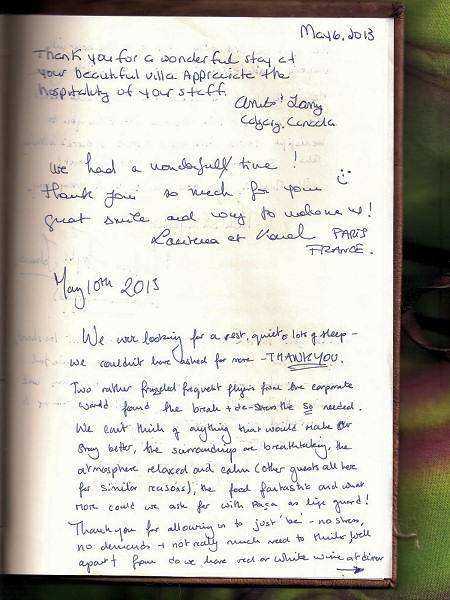 May 6, 2013
Thank you for a wonderful stay at
your beautiful villa Appreciate the
hospitality of your staff.
& Larry
Calgary, Canada
We had a wonderful time !
thank you so much for your
great smile and way to welcome us!
et PARIS
FRANCE.
May 10th 2013
We were looking for a rest, quiet & lots of sleep -
we couldn't have asked for more - THANK YOU.
Two rather frazzled frequent flyers from the corporate
world found the break + de-stress the so needed.
We can't think of anything that would make our
stay better, the surroundings are breathtaking, the
atmosphere relaxed and calm (other guests all here
for similar reasons), the food fantastic and what
more could we ask for with as life guard!
Thank you for allowing us to just 'be' - no stress,
no demands + not really much need to think (well
apart from do we have red or white wine at dinner